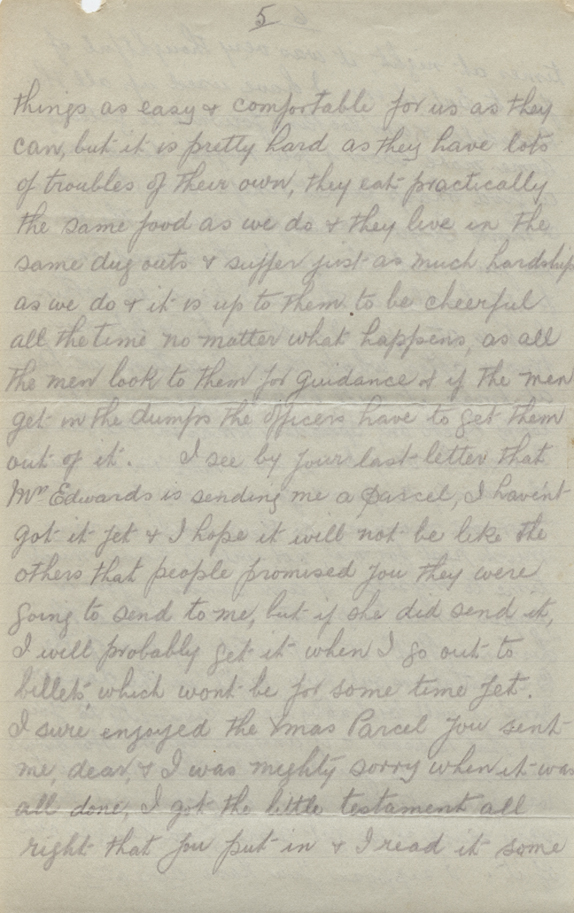 5
things as easy & comfortable for us as they
can, but it is pretty hard as they have lots
of troubles of their own, they eat practically
the same food as we do & they live in the
same dug outs & suffer just as much hardship
as we do & it is up to them to be cheerful
all the time no matter what happens, as all
the men look to them for guidance & if the men
get in the dumps the officers have to get them
out of it. I see by your last letter that
Mrs Edwards is sending me a parcel, I havent
got it yet & I hope it will not be like the
others that people promised you they were
going to send to me, but if she did send it,
I will probably get it when I go out to
billets, which wont be for some time yet.
I sure enjoyed the Xmas Parcel you sent
me, dear, & I was mighty sorry when it was
all done, I got the little testament all
right that you put in & I read it some